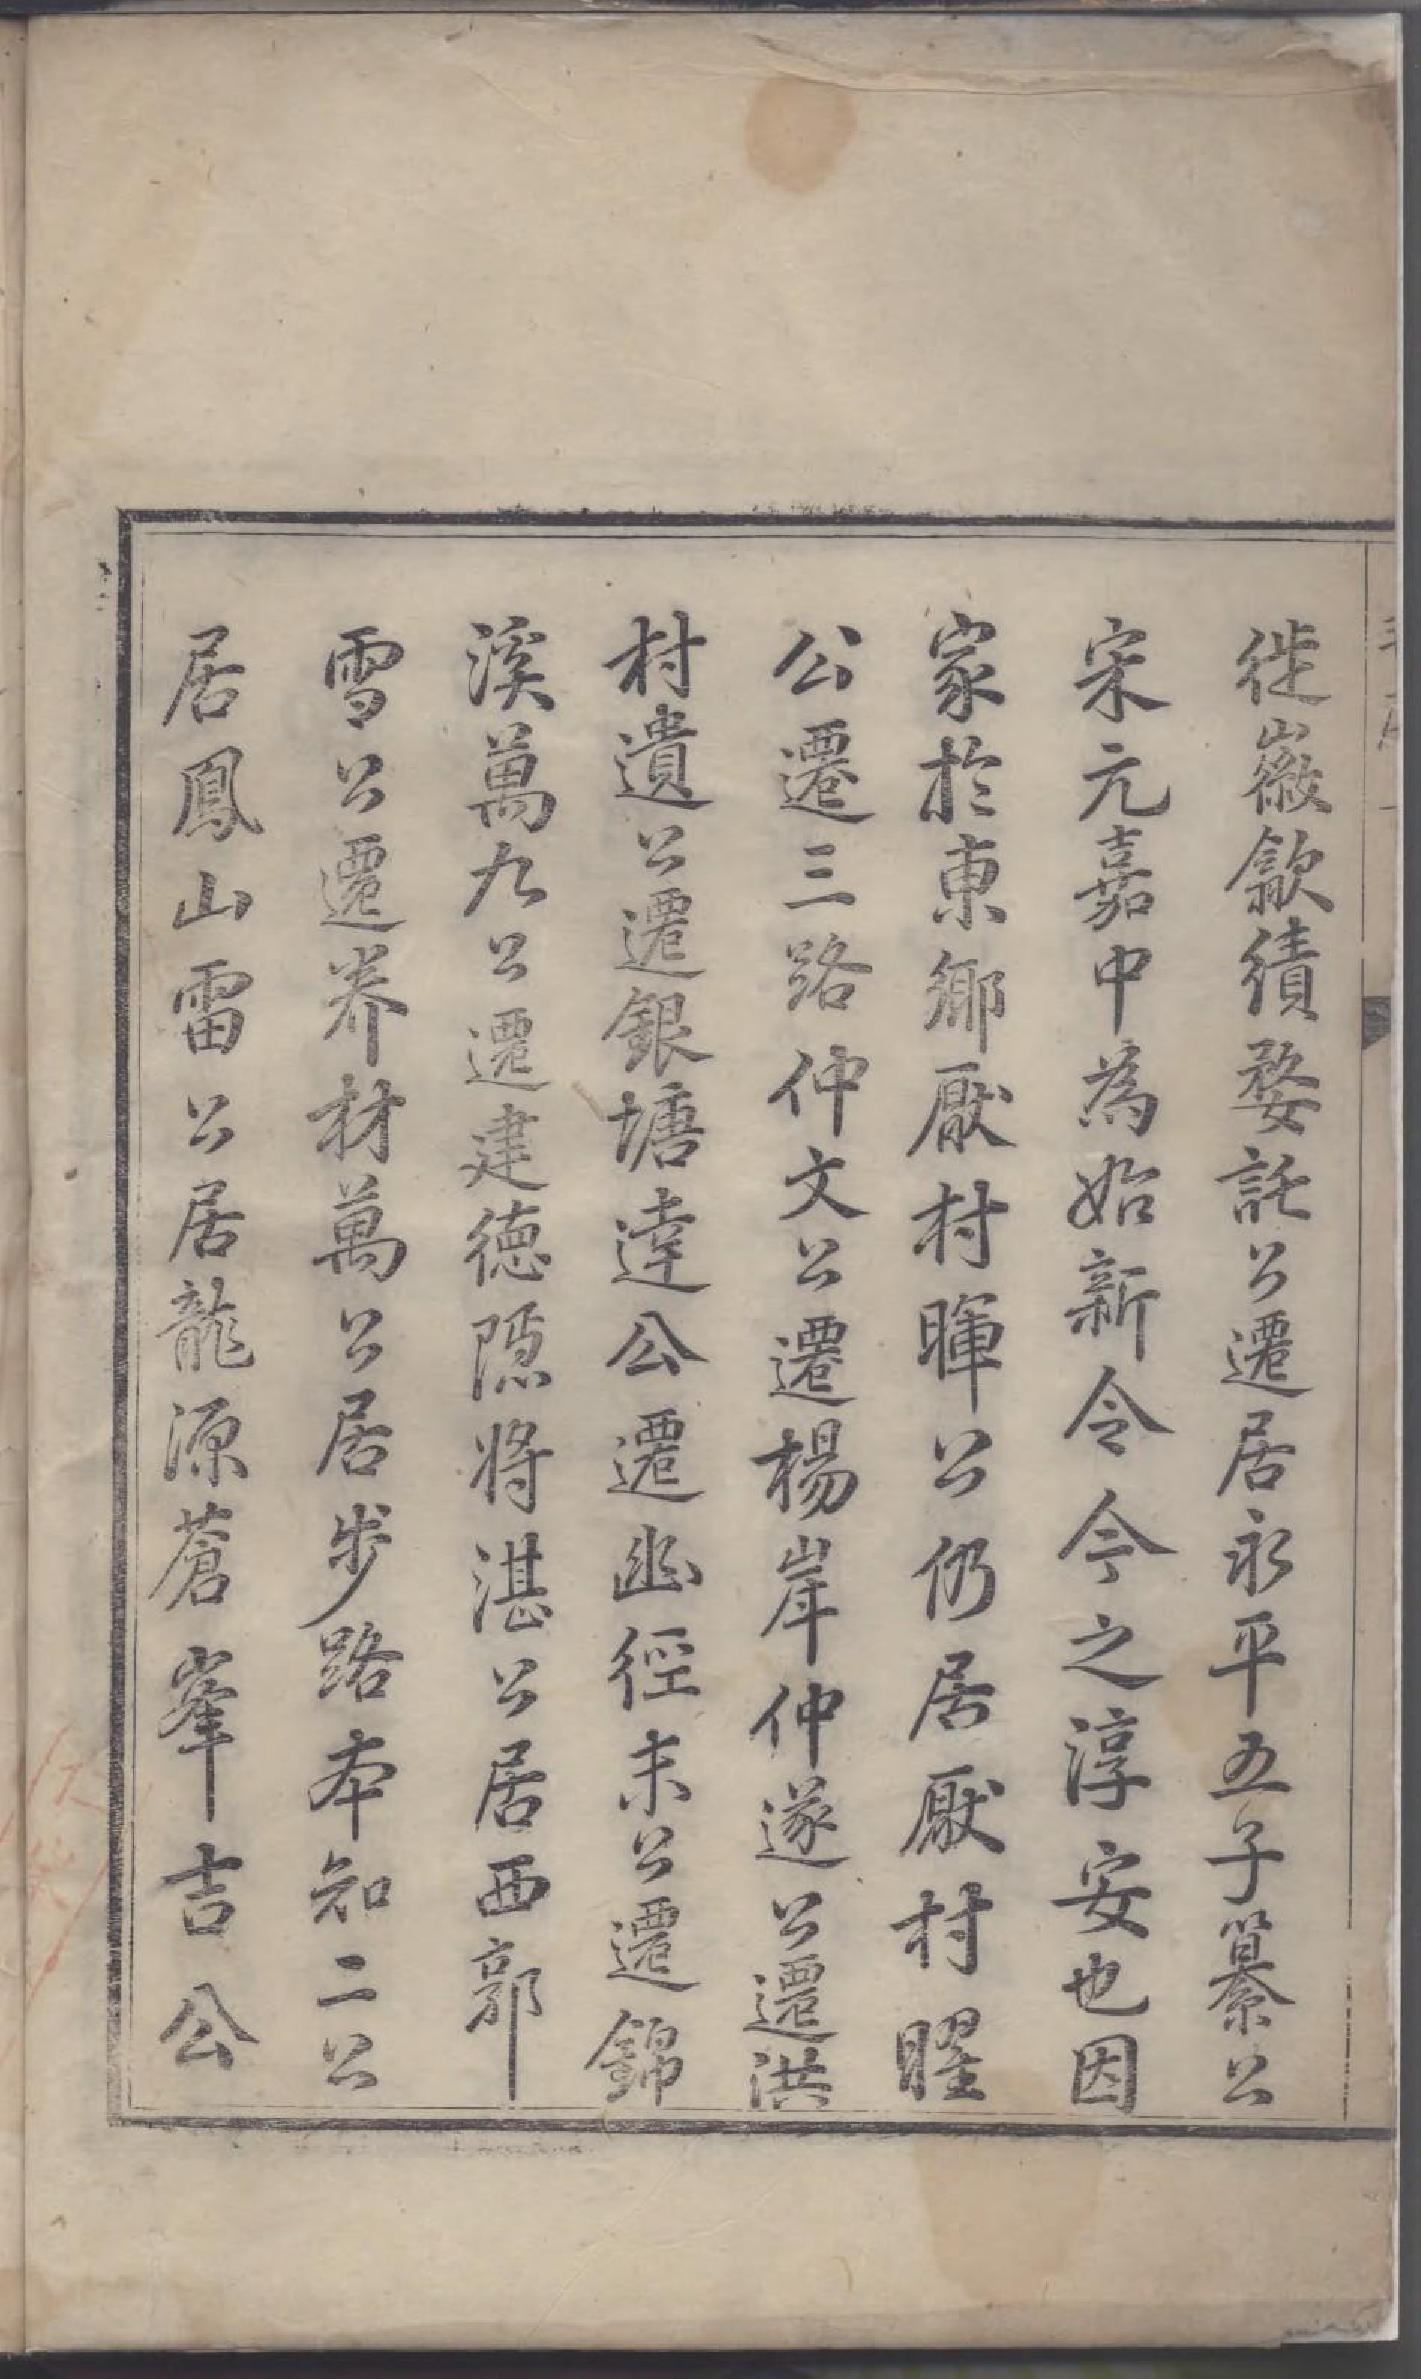 徙徽歙績婺託公遷居永平五子纂公
宋元嘉中為始新令今之淳安也因
家於東鄉厥村暉公仍居厥村曜
公遷三路仲文公遷楊岸仲遂公遷洪
村遺公遷銀塘逹公遷幽徑未公遷錦
溪萬九公遷建德隠將湛公居西郭
雪公遷养材萬公居步路本知二公
居鳳山雷公居龍源蒼峯吉公